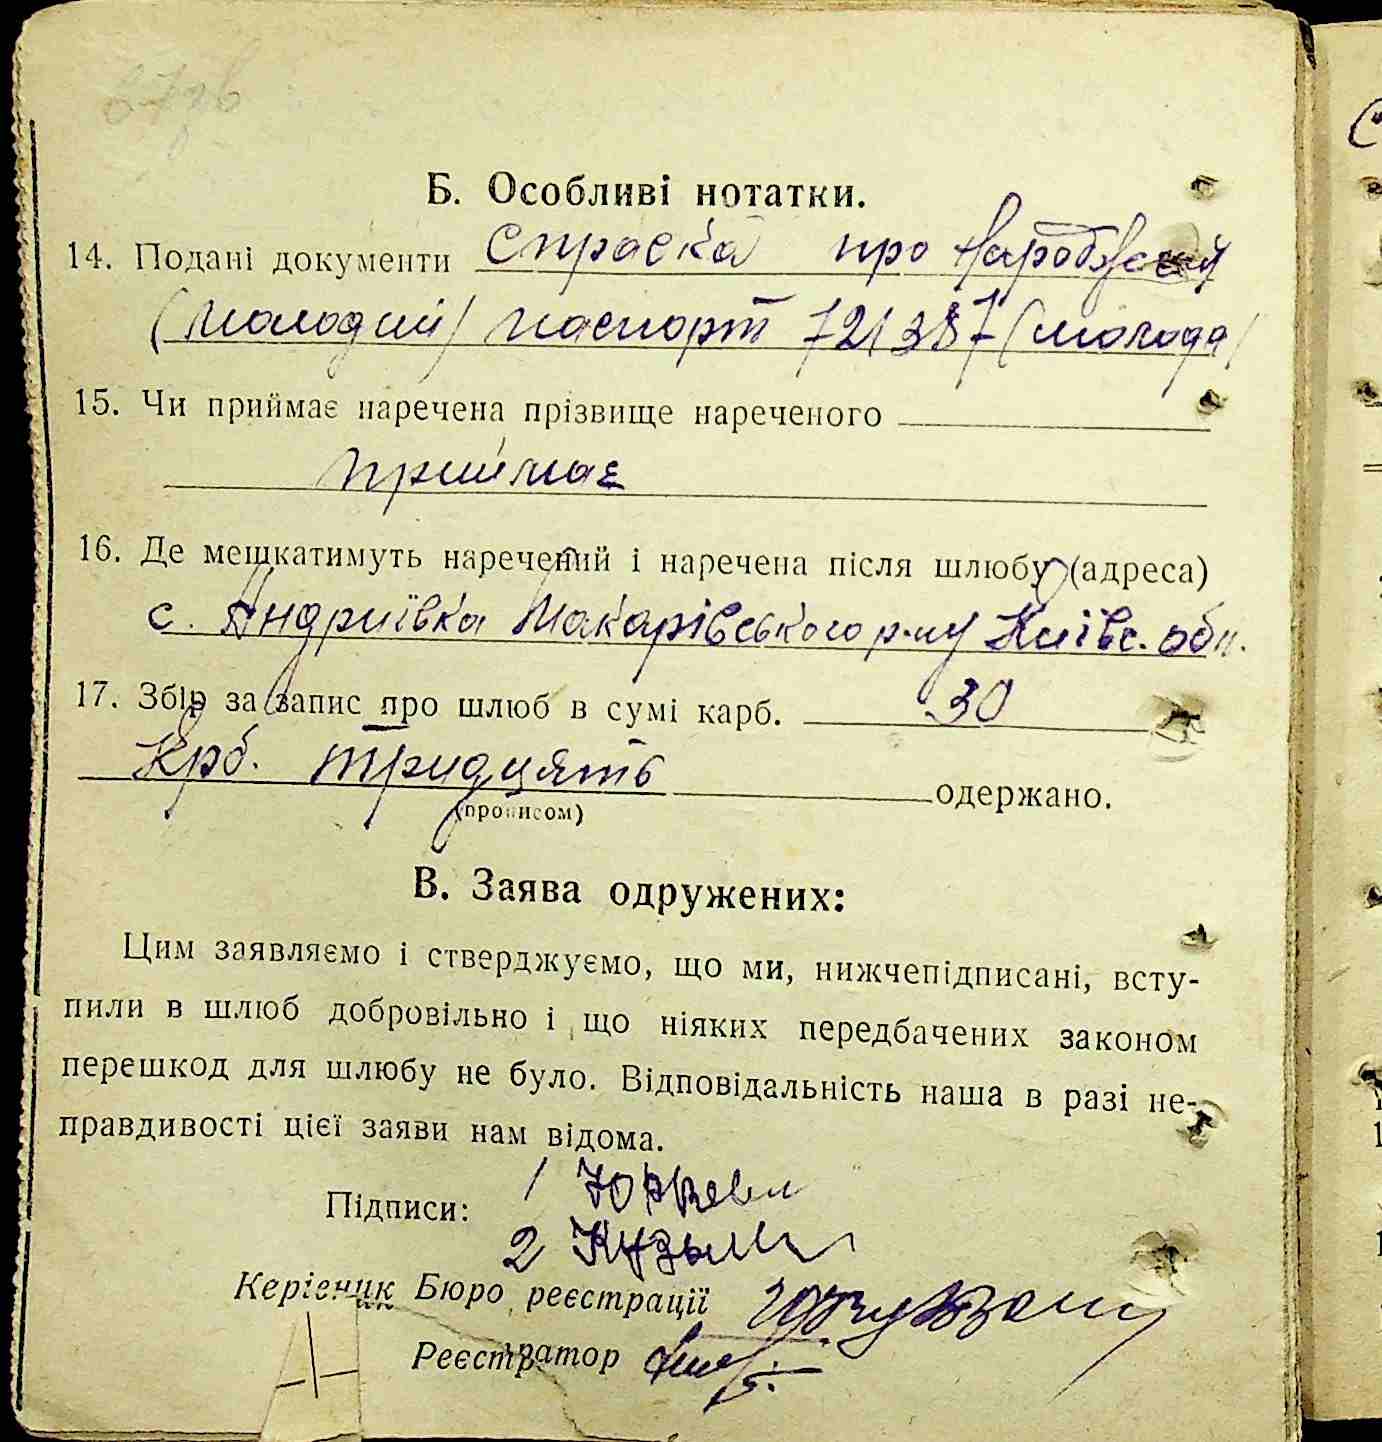 Б. Особливі нотатки.
14. Подані документи Справка про
(молодий) паспорт 721387 (молода)
15. Чи приймає наречена прізвище нареченого
приймає
16. Де мешкатимуть наречений і наречена після шлюбу (адреса)
с. Андриївка Макарівського р-ну Київс. обл.
17. Збір за запис про шлюб в сумі карб. 30
крб. тридцять одержано.
(прописом)
В. Заява одружених:
Цим заявляємо і стверджуємо, що ми, нижчепідписані, всту-
пили в шлюб добровільно і що ніяких передбачених законом
перешкод для шлюбу не було. Відповідальність наша в разі не-
правдивості цієї заяви нам відома.
Підписи: 1
2
Керівник Бюро реєстрації
Реєстратор